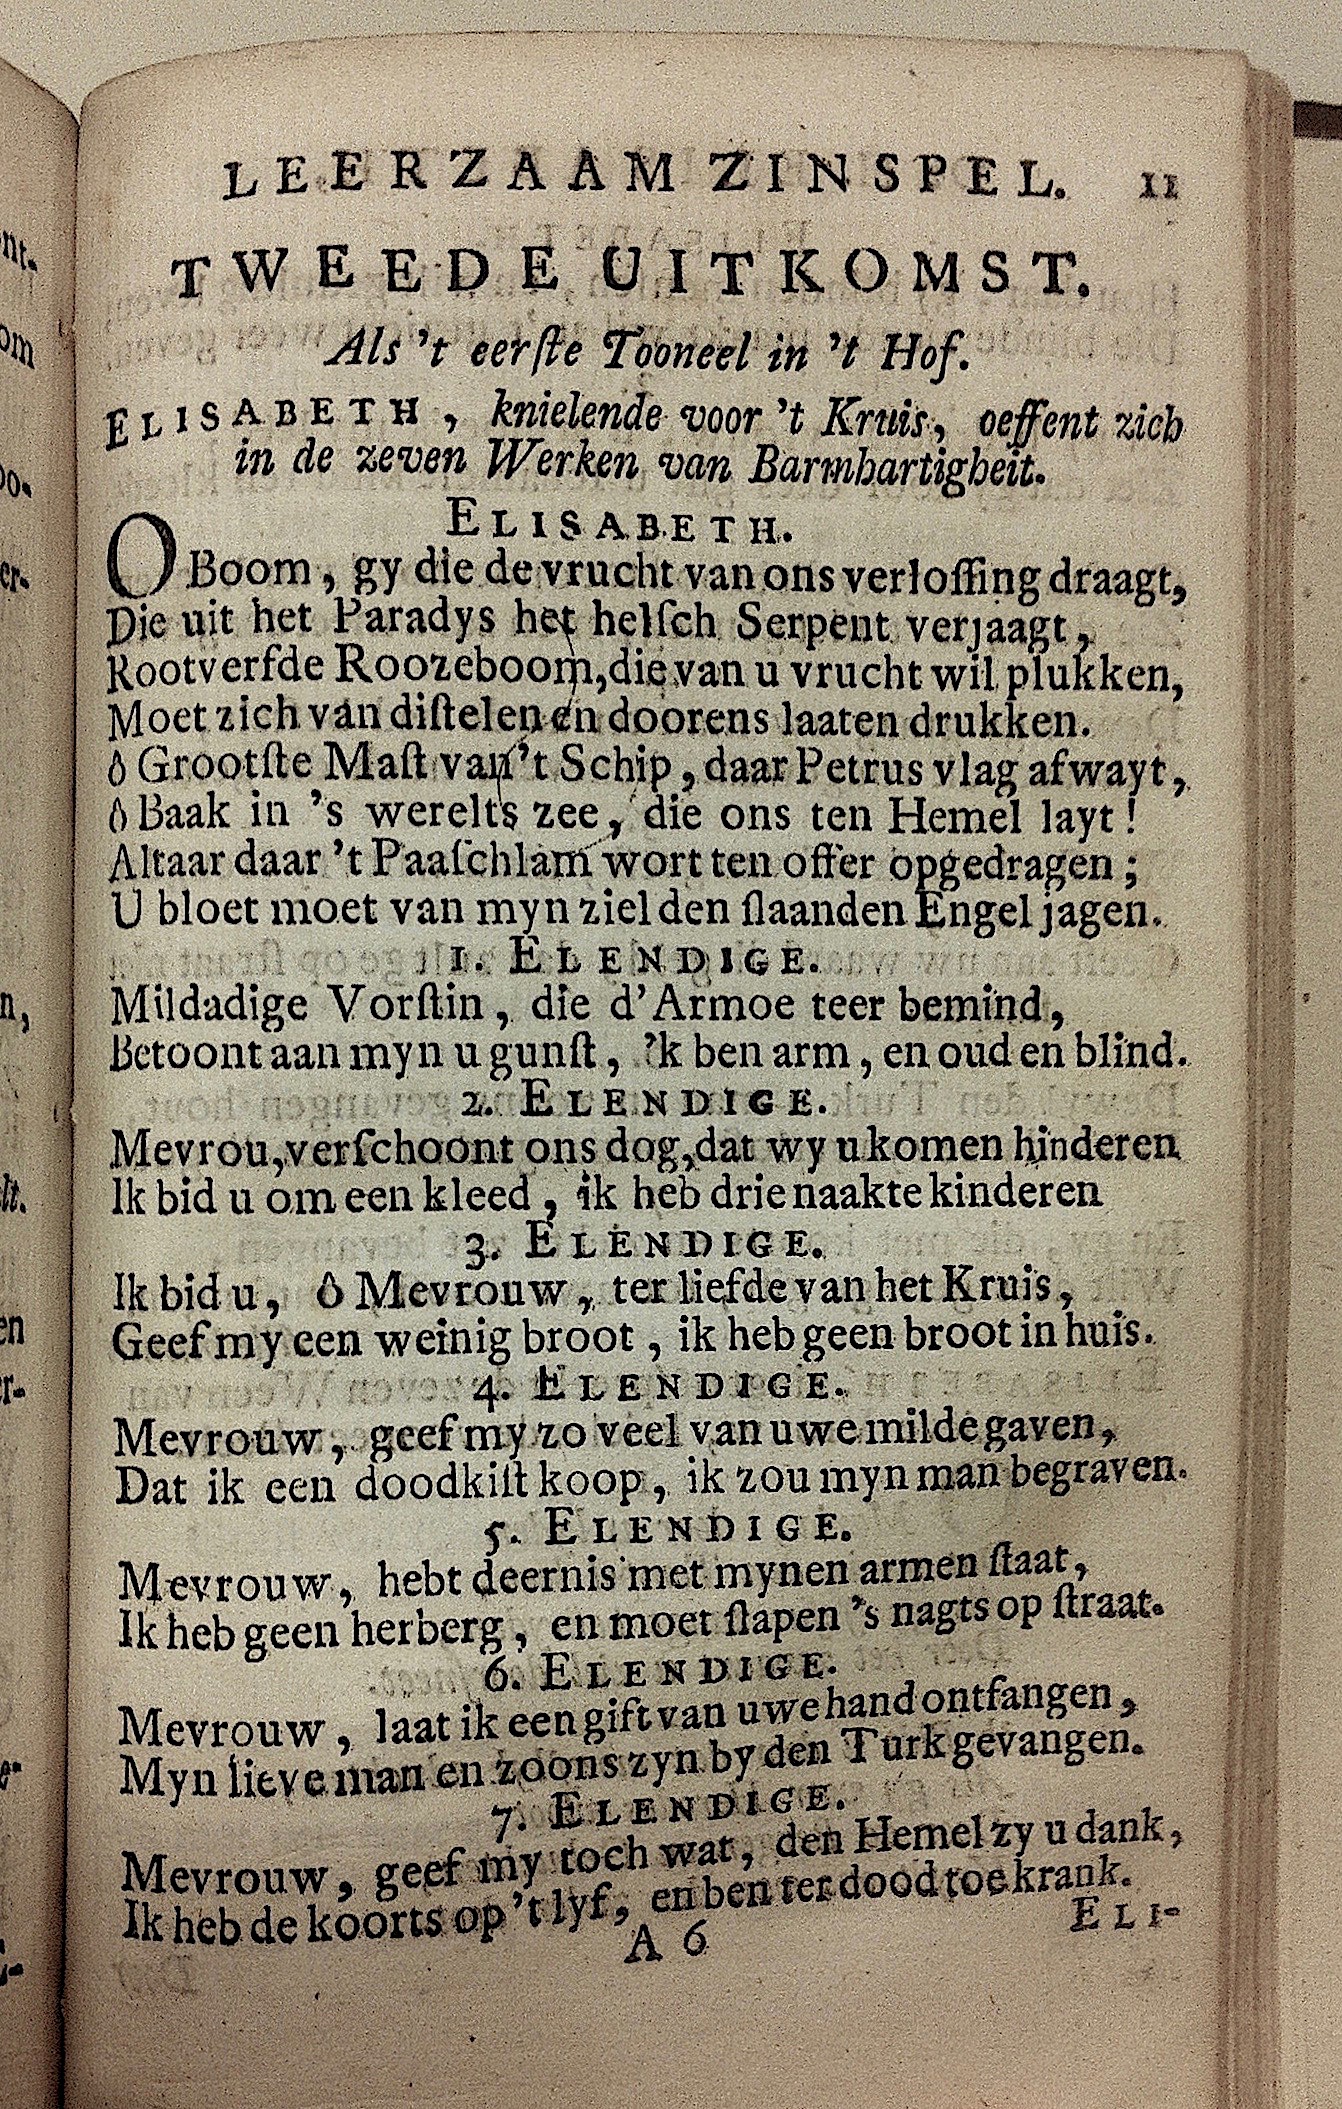 LEERZAAM ZINSPEL. 11
TWEEDE UITKOMST.
Als 't eerſte Tooneel in 't Hof.
ELISABETH, knielende voor 't Kruis, oeffent zich
in de zeven Werken van Barmhartigheit.
ELISABETH.
O Boom, gy die de vrucht van ons verloſſing draagt,
Die uit het Paradys het helſch Serpent verjaagt,
Rootverfde Roozeboom, die van u vrucht wil plukken,
Moet zich van diſtelen en doorens laaten drukken.
ô Grootſte Maſt van 't Schip, daar Petrus vlag afwayt,
ô Baak in 's werelts zee, die ons ten Hemel layt!
Altaar daar 't Paaſchlam wort ten offer opgedragen;
U bloet moet van myn ziel den ſlaanden Engel jagen.
1. ELENDIGE.
Mildadige Vorſtin, die d'Armoe teer bemind,
Betoont aan myn u gunſt, 'k ben arm, en oud en blind.
2. ELENDIGE.
Mevrou, verſchoont ons dog, dat wy u komen hinderen
Ik bid u om een kleed, ik heb drie naakte kinderen
3. ELENDIGE.
Ik bid u, ô Mevrouw, ter liefde van het Kruis,
Geef my een weinig broot, ik heb geen broot in huis.
4. ELENDIGE.
Mevrouw, geef my zo veel van uwe milde gaven,
Dat ik een doodkiſt koop, ik zou myn man begraven.
5. ELENDIGE.
Mevrouw, hebt deernis met mynen armen ſtaat,
Ik heb geen herberg, en moet ſlapen 's nagts op ſtraat.
6. ELENDIGE.
Mevrouw, laat ik een gift van uwe hand ontfangen,
Myn lieve man en zoons zyn by den Turk gevangen.
7. ELENDIGE.
Mevrouw, geef my toch wat, den Hemel zy u dank,
Ik heb de koorts op 't lyf, en ben ter dood toe krank.
A 6 ELI-